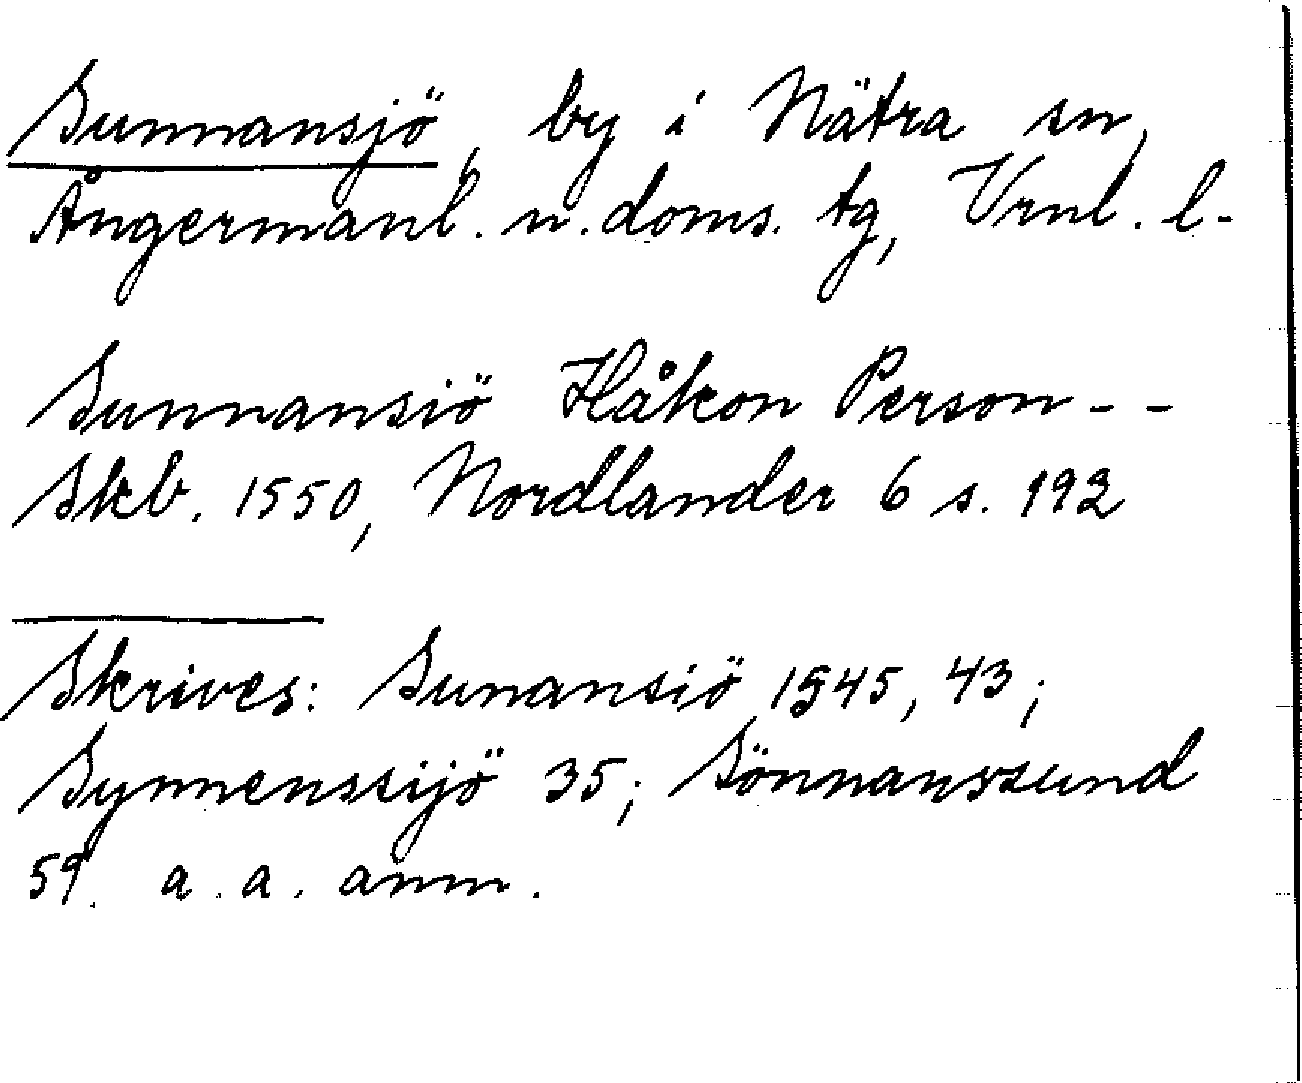 Sunnansjö, by i Nätra sn,
Ångermanl. n. doms. tg, Vrnl. l.
Sunnansiö Håkon Person - -
Skb. 1550, Nordlander 6 s. 192
Skrives: Sunansiö 1545, 43;
Synnenssijö 35; Sönnanssund
59. a. a. anm.